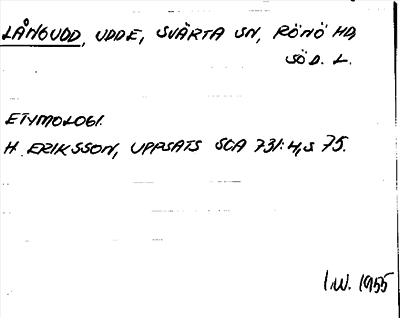 LÅNGUDD, UDDE, SVÄRTA SN, RÖNÖ HD,
SÖD. L.
ETYMOLOGI.
H. ERIKSSON, UPPSATS SOA 731:4, S 75.
I.W. 1955